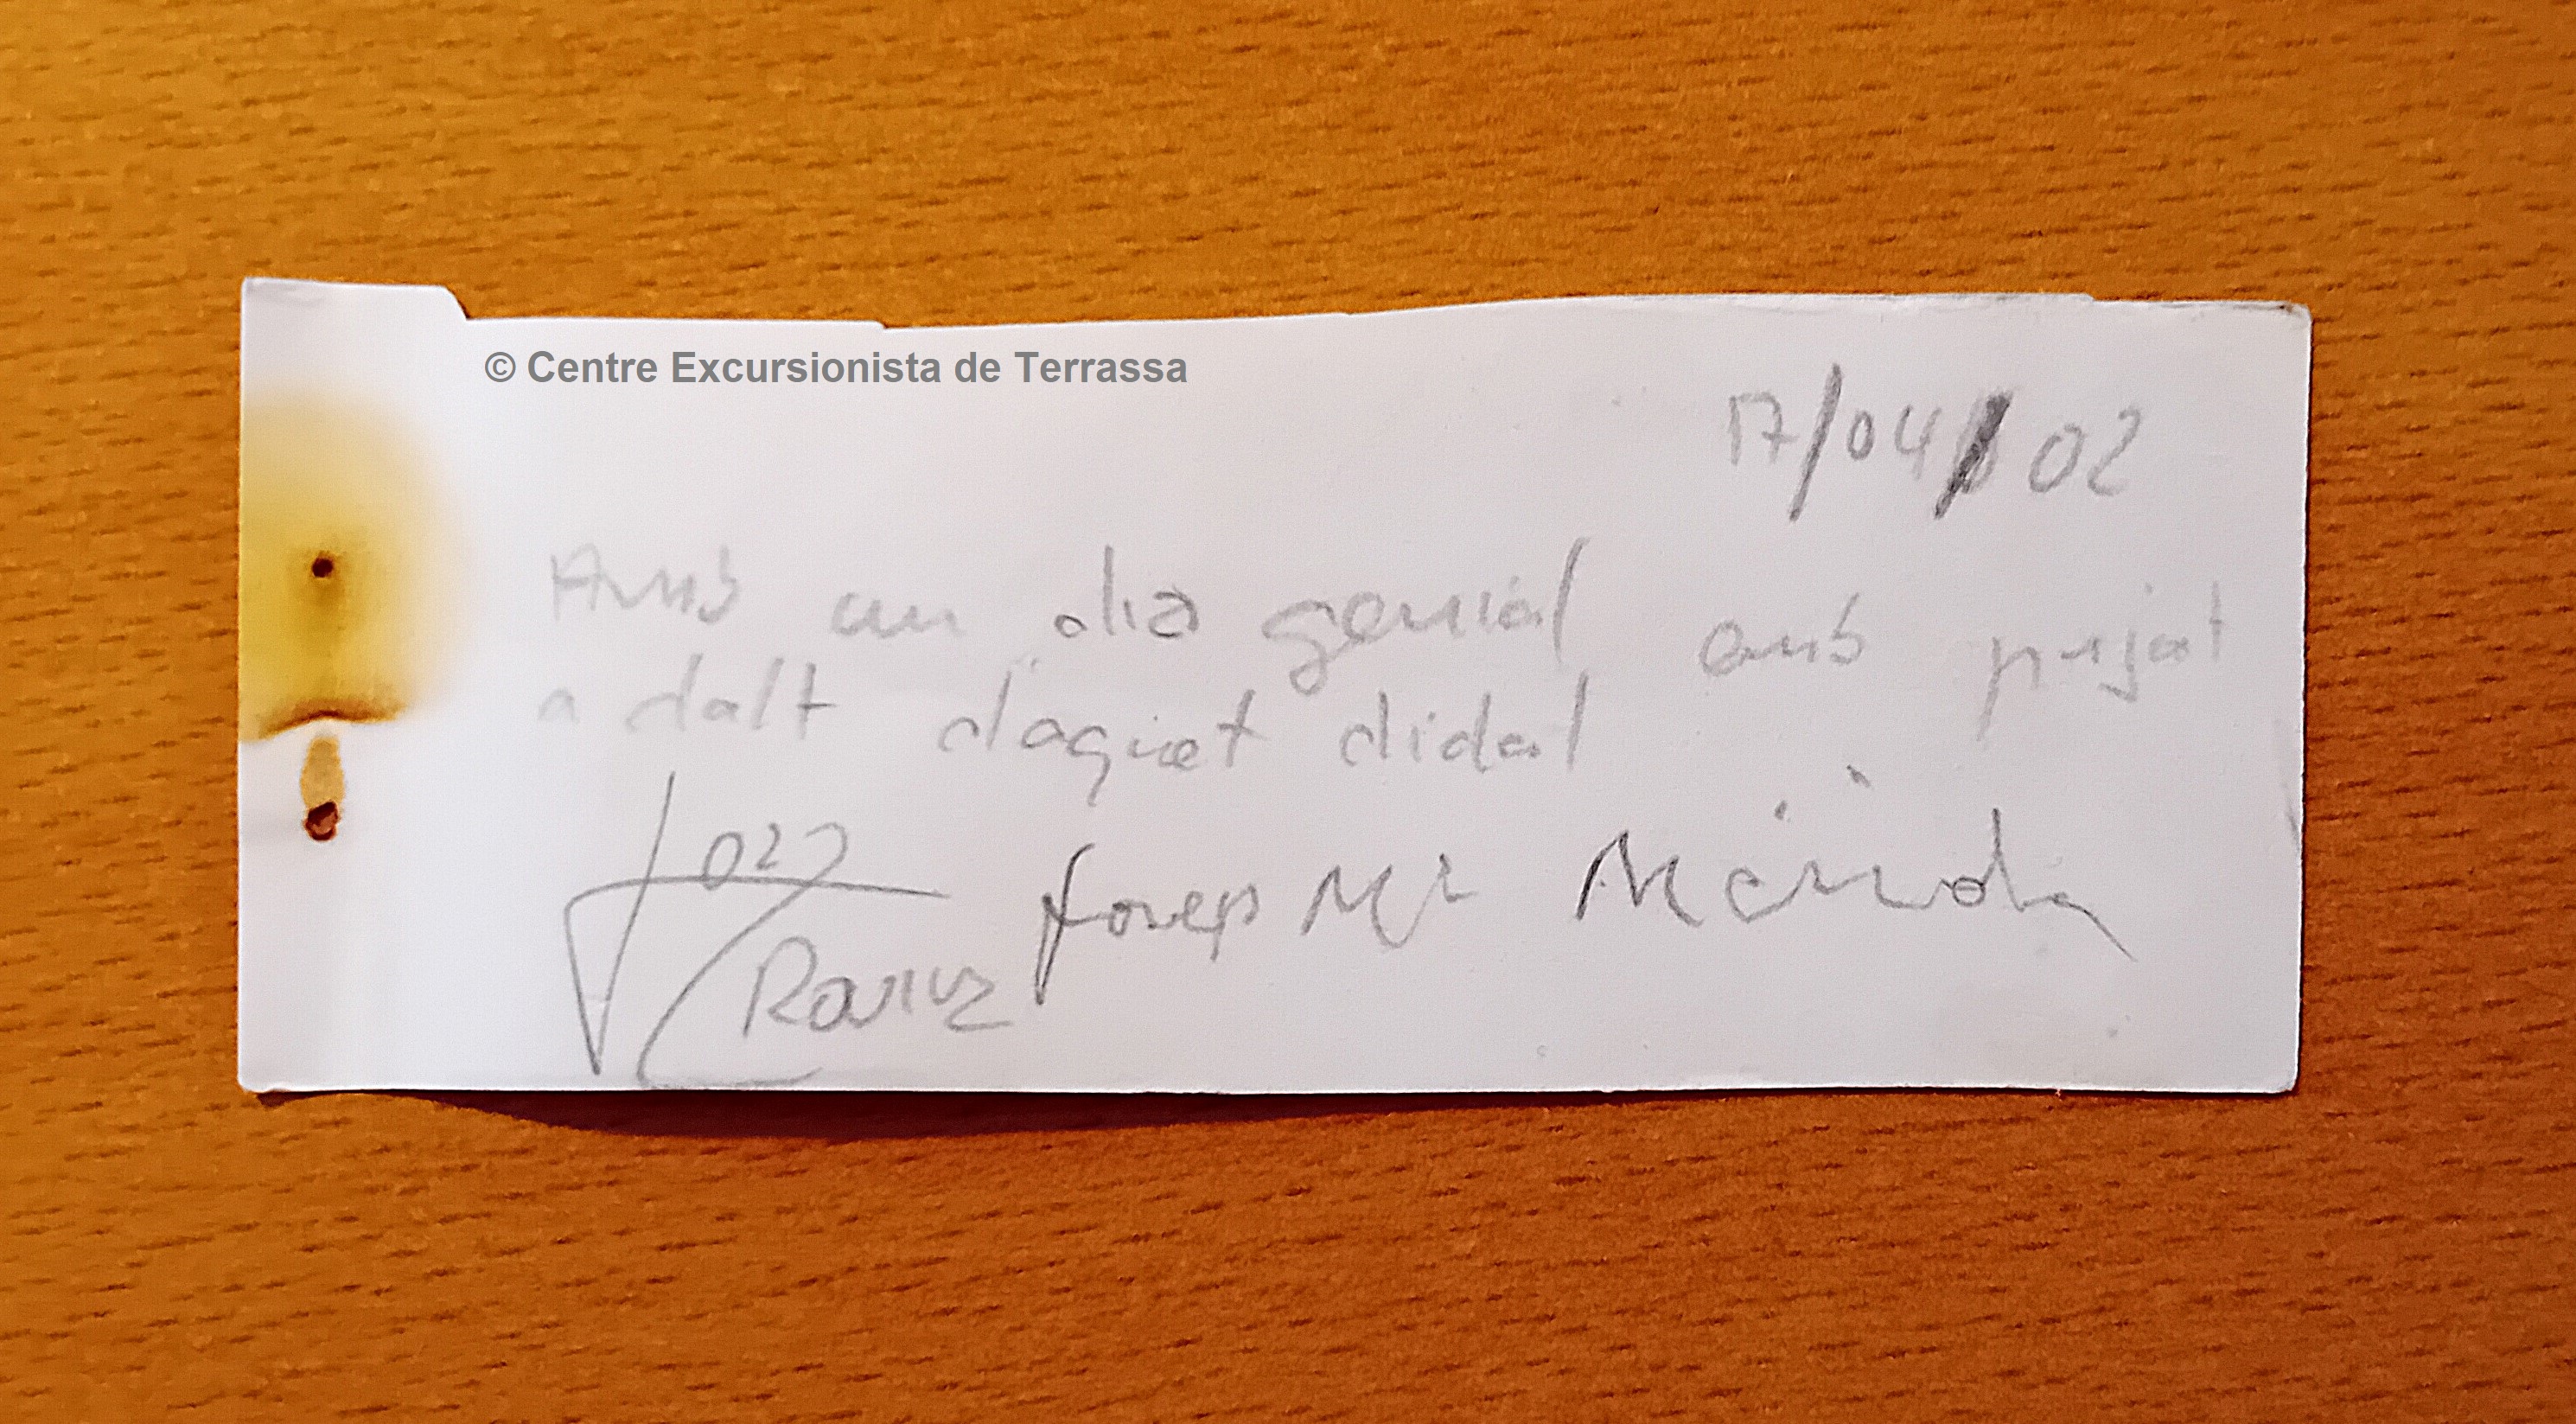 © Centre Excursionista de Terrassa
17/04/02
Amb un dia genial amb pujat
a dalt d'aquet didal
Josep Mª